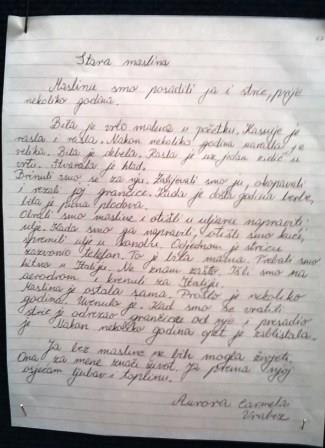 Stara maslina
Maslinu smo posadili ja i stric, prije
nekoliko godina.
Bila je vrlo malena u početku. Kasnije je
rasla i rasla. Nakon nekoliko godina narasla je
velika. Bila je debela. Rasla je uz jedan zidić u
vrtu. Stvarala je hlad.
Brinuli smo se za nju. Zalijevali smo ju, okopavali
i rezali joj grančice. Kada je došla godina berbe,
bila je puna plodova.
Obrali smo masline i otišli u uljaru napraviti
ulje. Kada smo ga napravili, otišli smo kući,
spremili ulje u kanolu. Odjednom je stricu
zazvonio telefon. To je bila mama. Trebali smo
hitno u Italiju. Ne znam zašto. Išli smo na
aerodrom i krenuli za Italiju.
Maslina je ostala sama. Prošlo je nekoliko
godina. Uvenula je. Kad smo se vratili
stric je odrezao grančicu od nje i presadio
je. Nakon nekoliko godina opet je zablistala.
Ja bez masline ne bih mogla živjeti.
Ona za mene znači život. Ja prema njoj
osjećam ljubav i toplinu.
Aurora Carmela